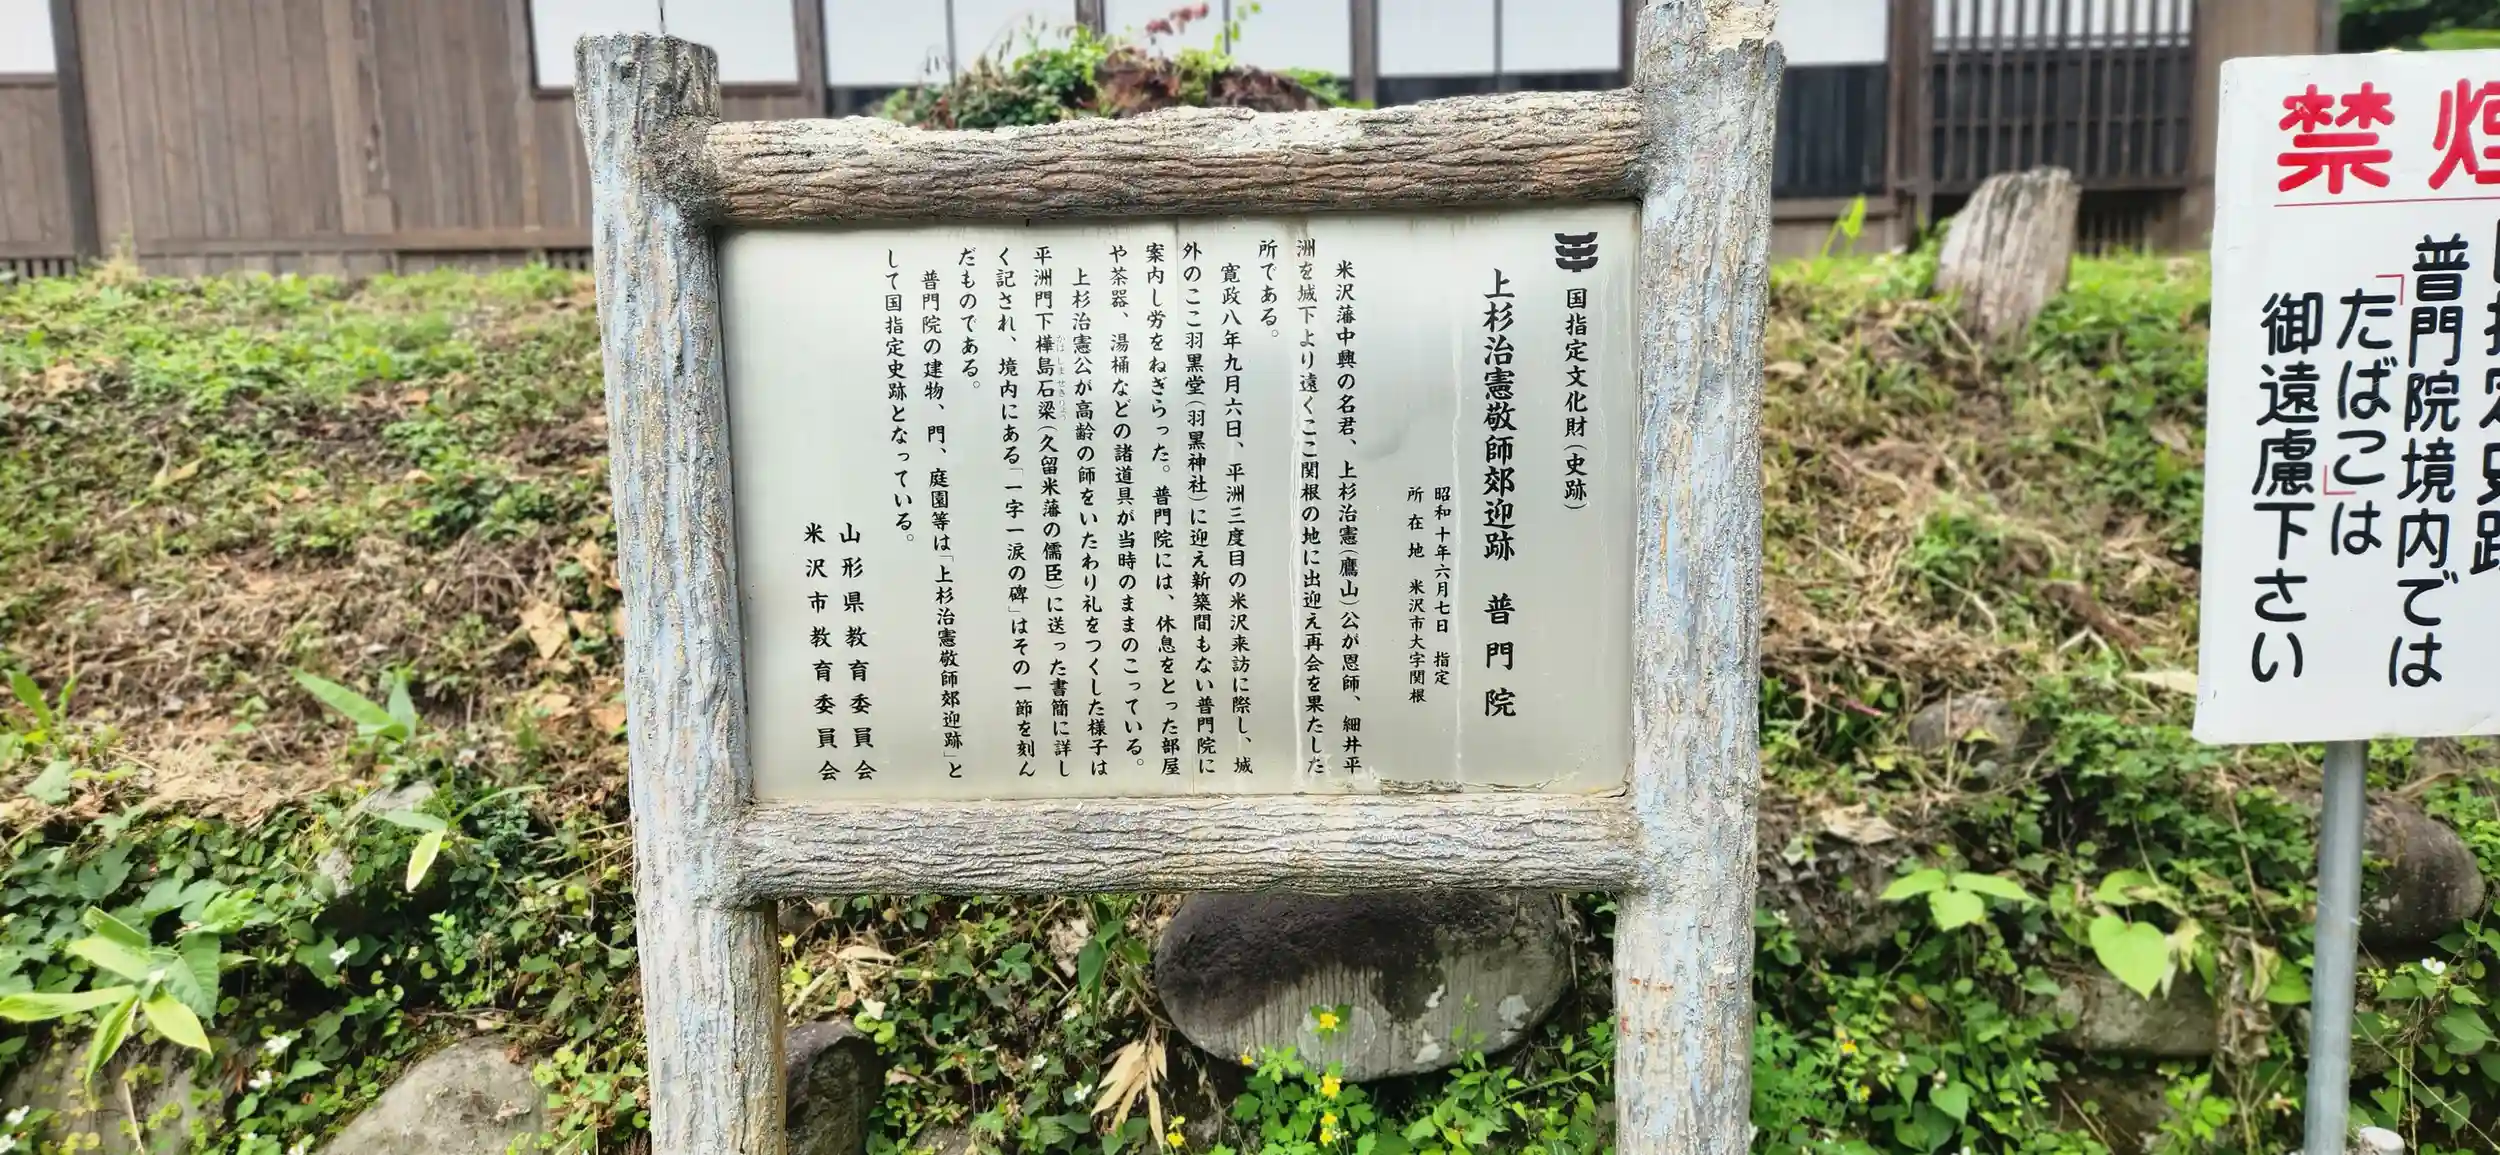 禁煙
国指定史跡
普門院境内では
「たばこ」は
御遠慮下さい
国指定文化財(史跡)
上杉治憲敬師郊迎跡 普門院
昭和十年六月七日 指定
所在地 米沢市大字関根
米沢藩中興の名君、上杉治憲(鷹山)公が恩師、細井平
洲を城下より遠くここ関根の地に出迎え再会を果たした
所である。
寛政八年九月六日、平洲三度目の米沢来訪に際し、城
外のここ羽黒堂(羽黒神社)に迎え新築間もない普門院に
案内し労をねぎらった。普門院には、休息をとった部屋
や茶器、湯桶などの諸道具が当時のままのこっている。
上杉治憲公が高齢の師をいたわり礼をつくした様子は
平洲門下樺島石梁(久留米藩の儒臣)に送った書簡に詳し
かばしませきりょう
く記され、境内にある「一字一涙の碑」はその一節を刻ん
だものである。
普門院の建物、門、庭園等は「上杉治憲敬師郊迎跡」と
して国指定史跡となっている。
山形県教育委員会
米沢市教育委員会